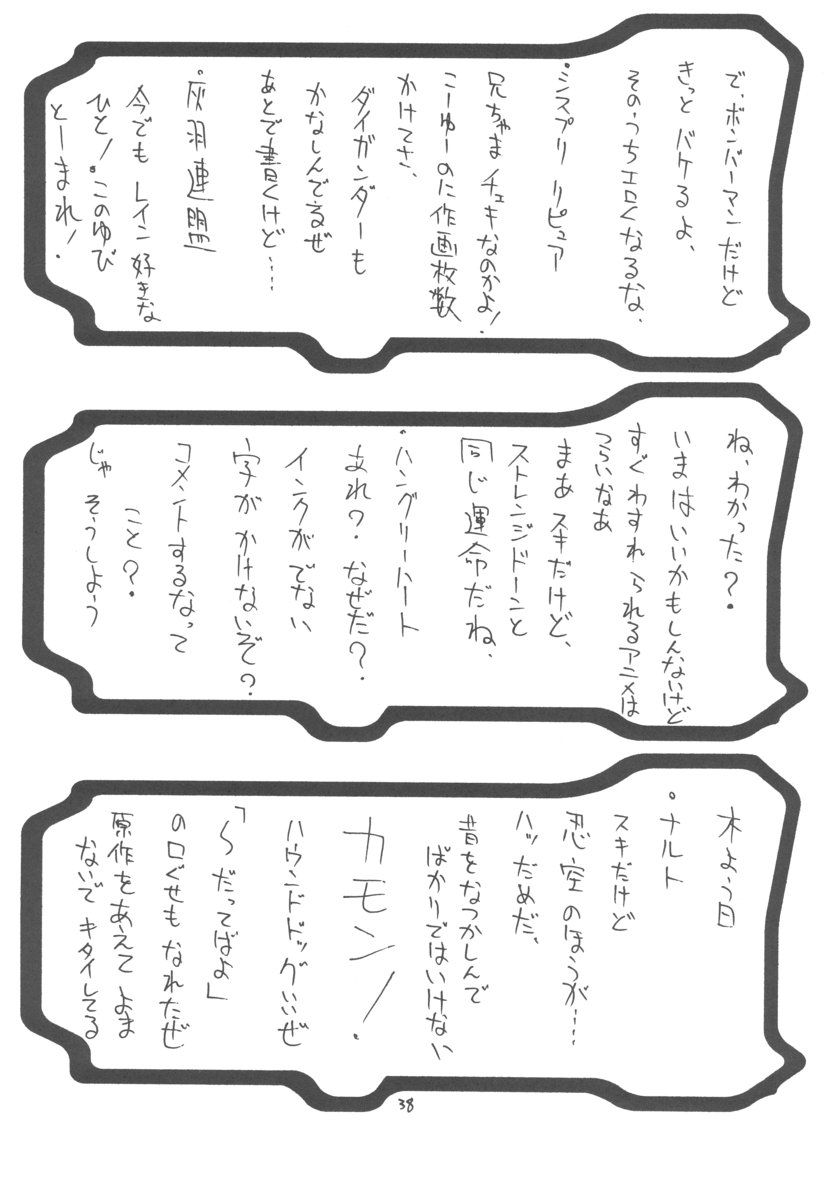 で、ボンバーマンだけど
きっと バケるよ、
そのうちエロくなるな、
・シスプリ リピュア
兄ちゃま チェキなのかよ!
こーゆーのに作画枚数
かけてさ、
ダイガンダーも
かなしんでるぜ
あとで書くけど…
・灰羽連盟
今でも レイン 好きな
ひと!このゆび
とーまれ!
ね、わかった?
いまはいいかもしんないけど
すぐわすれられるアニメは
つらいなあ
まあ スキだけど、
ストレンジドーンと
同じ運命だね、
・ハングリーハート
あれ?なぜだ?
インクがでない
字が かけないぞ?
コメントするなって
こと?
じゃ そうしよう
木よう日
・ナルト
スキだけど
忍空のほうが…
ハッだめだ、
昔をなつかしんで
ばかりではいけない
カモン!
ハウンドドッグいいぜ
「〜だってばよ」
の口ぐせも なれたぜ
原作をあえて よま
ないで キタイしてる
38